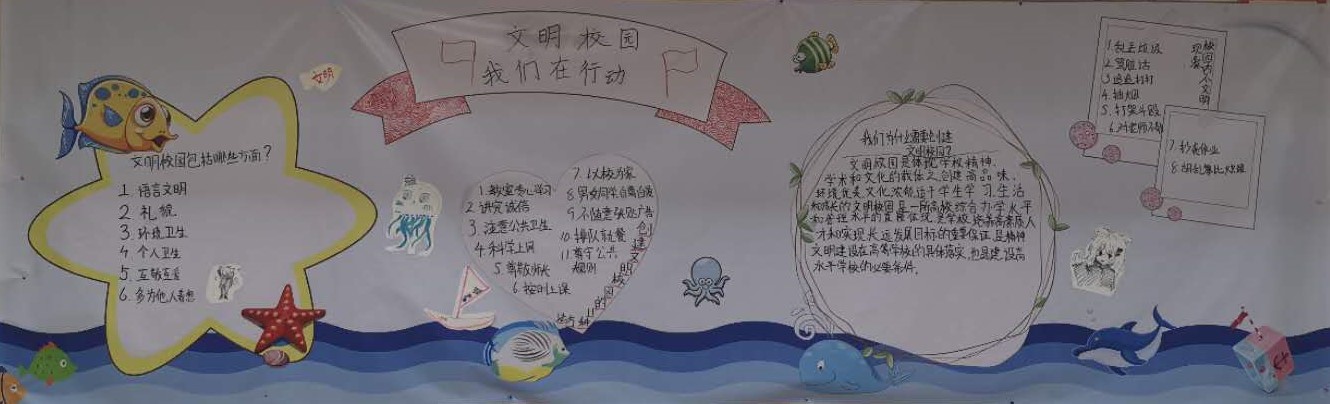 文明校园
我们在行动
文明
文明校园包括哪些方面？
1. 语言文明
2 礼貌
3. 环境卫生
4 个人卫生
5. 互敬互爱
6. 多为他人着想
1. 教室专心学习
2. 讲究诚信
3. 注意公共卫生
4. 科学上网
5 尊敬师长
6. 按时上课
7. 以校为家
8. 男女同学自尊自爱
9. 不随意张贴广告
10. 排队就餐
11. 遵守公共
规则
创建文明校园的11种方
我们为什么需要创建
文明校园？
文明校园是体现学校精神、
学术和文化的载体之创建高品味、
环境优美文化浓郁适于学生学习、生活
和成长的文明校园是一所高校综合办学水平
和管理水平的直接体现，是学校培养高素质人
才和实现长远发展目标的重要保证，是精神
文明建设在高等学校的具体落实，也是建设高
水平学校的必要条件。
校园内不文明
现象
1. 乱丢垃圾
2. 骂脏话
3. 追追打打
4. 抽烟
5. 打架斗殴
6. 对老师不敬
7. 抄袭作业
8. 胡乱攀比